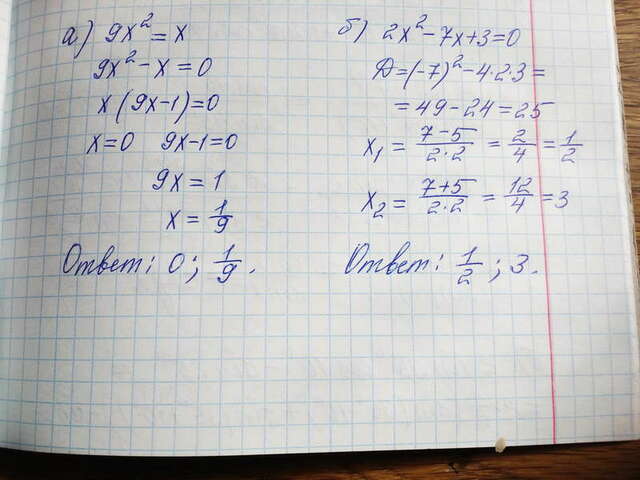 а) 9x² = x
9x² - x = 0
x(9x-1)=0
x=0 9x-1=0
9x = 1
x = 1/9
Ответ: 0; 1/9.
б) 2x² - 7x+3=0
Д=(-7)² - 4·2·3=
= 49-24=25
x₁ = (7-5)/(2·2) = 2/4 = 1/2
x₂ = (7+5)/(2·2) = 12/4 = 3
Ответ: 1/2; 3.